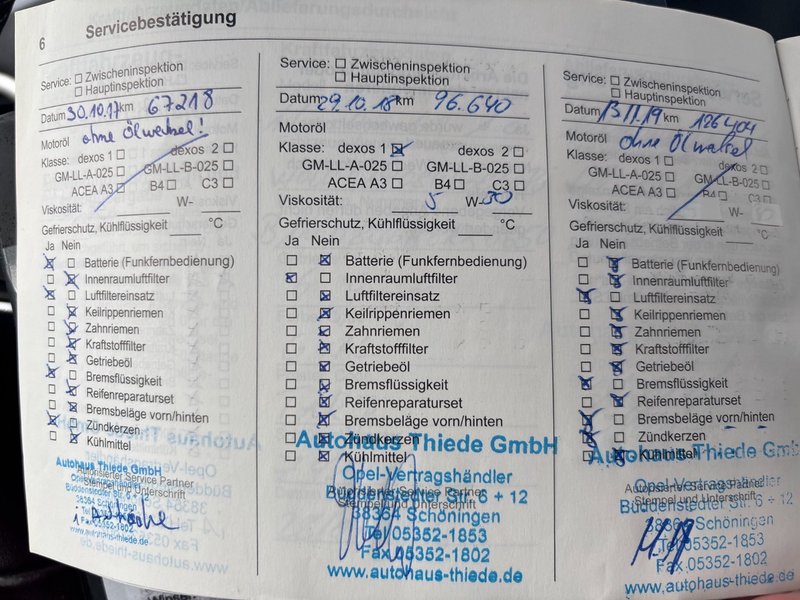 6 Servicebestätigung
Service: Zwischeninspektion
Hauptinspektion
Datum 30.10.17 km 67218
Motoröl ohne Ölwechsel!
Klasse: dexos 1 dexos 2
GM-LL-A-025 GM-LL-B-025
ACEA A3 B4 C3
Viskosität: W-
Gefrierschutz, Kühlflüssigkeit °C
Ja Nein
Batterie (Funkfernbedienung)
Innenraumluftfilter
Luftfiltereinsatz
Keilrippenriemen
Zahnriemen
Kraftstofffilter
Getriebeöl
Bremsflüssigkeit
Reifenreparaturset
Bremsbeläge vorn/hinten
Zündkerzen
Kühlmittel
Autohaus Thiede GmbH
Autorisierter Service Partner
Opel-Vertragshändler
Stempel und Unterschrift
Büddenstedter Str. 6 +
38364 Schöningen
Fax 05352-1802
www.autohaus-thiede.de
Service: Zwischeninspektion
Hauptinspektion
Datum 29.10.18 km 96.640
Motoröl
Klasse: dexos 1 dexos 2
GM-LL-A-025 GM-LL-B-025
ACEA A3 B4 C3
Viskosität: 5 W-30
Gefrierschutz, Kühlflüssigkeit °C
Ja Nein
Batterie (Funkfernbedienung)
Innenraumluftfilter
Luftfiltereinsatz
Keilrippenriemen
Zahnriemen
Kraftstofffilter
Getriebeöl
Bremsflüssigkeit
Reifenreparaturset
Bremsbeläge vorn/hinten
Zündkerzen
Autohaus Thiede GmbH
Kühlmittel
Opel-Vertragshändler
Autorisierter Service Partner
Büddenstedter Str. 6 + 12
Stempel und Unterschrift
38364 Schöningen
Tel 05352-1853
Fax 05352-1802
www.autohaus-thiede.de
Service: Zwischeninspektion
Hauptinspektion
Datum 13.11.19 km 126404
Motoröl ohne Ölwechsel
Klasse: dexos 1 dexos 2
GM-LL-A-025 GM-LL-B-025
ACEA A3 B4 C3
Viskosität: W-
Gefrierschutz, Kühlflüssigkeit °C
Ja Nein
Batterie (Funkfernbedienung)
Innenraumluftfilter
Luftfiltereinsatz
Keilrippenriemen
Zahnriemen
Kraftstofffilter
Getriebeöl
Bremsflüssigkeit
Reifenreparaturset
Bremsbeläge vorn/hinten
Zündkerzen
Kühlmittel
Autohaus Thiede GmbH
Opel-Vertragshändler
Autorisierter Service Partner
Stempel und Unterschrift
Büddenstedter Str. 6 + 12
38364 Schöningen
Tel 05352-1853
Fax 05352-1802
www.autohaus-thiede.de